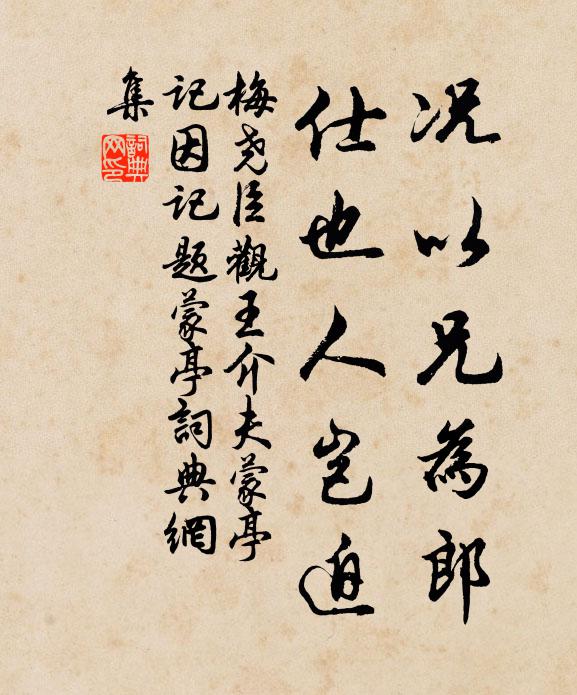 况以兄為郎
仕也人岂迫
梅尧臣觀王介夫蒙亭
记因记题蒙亭詞典網
集
詞典
网印